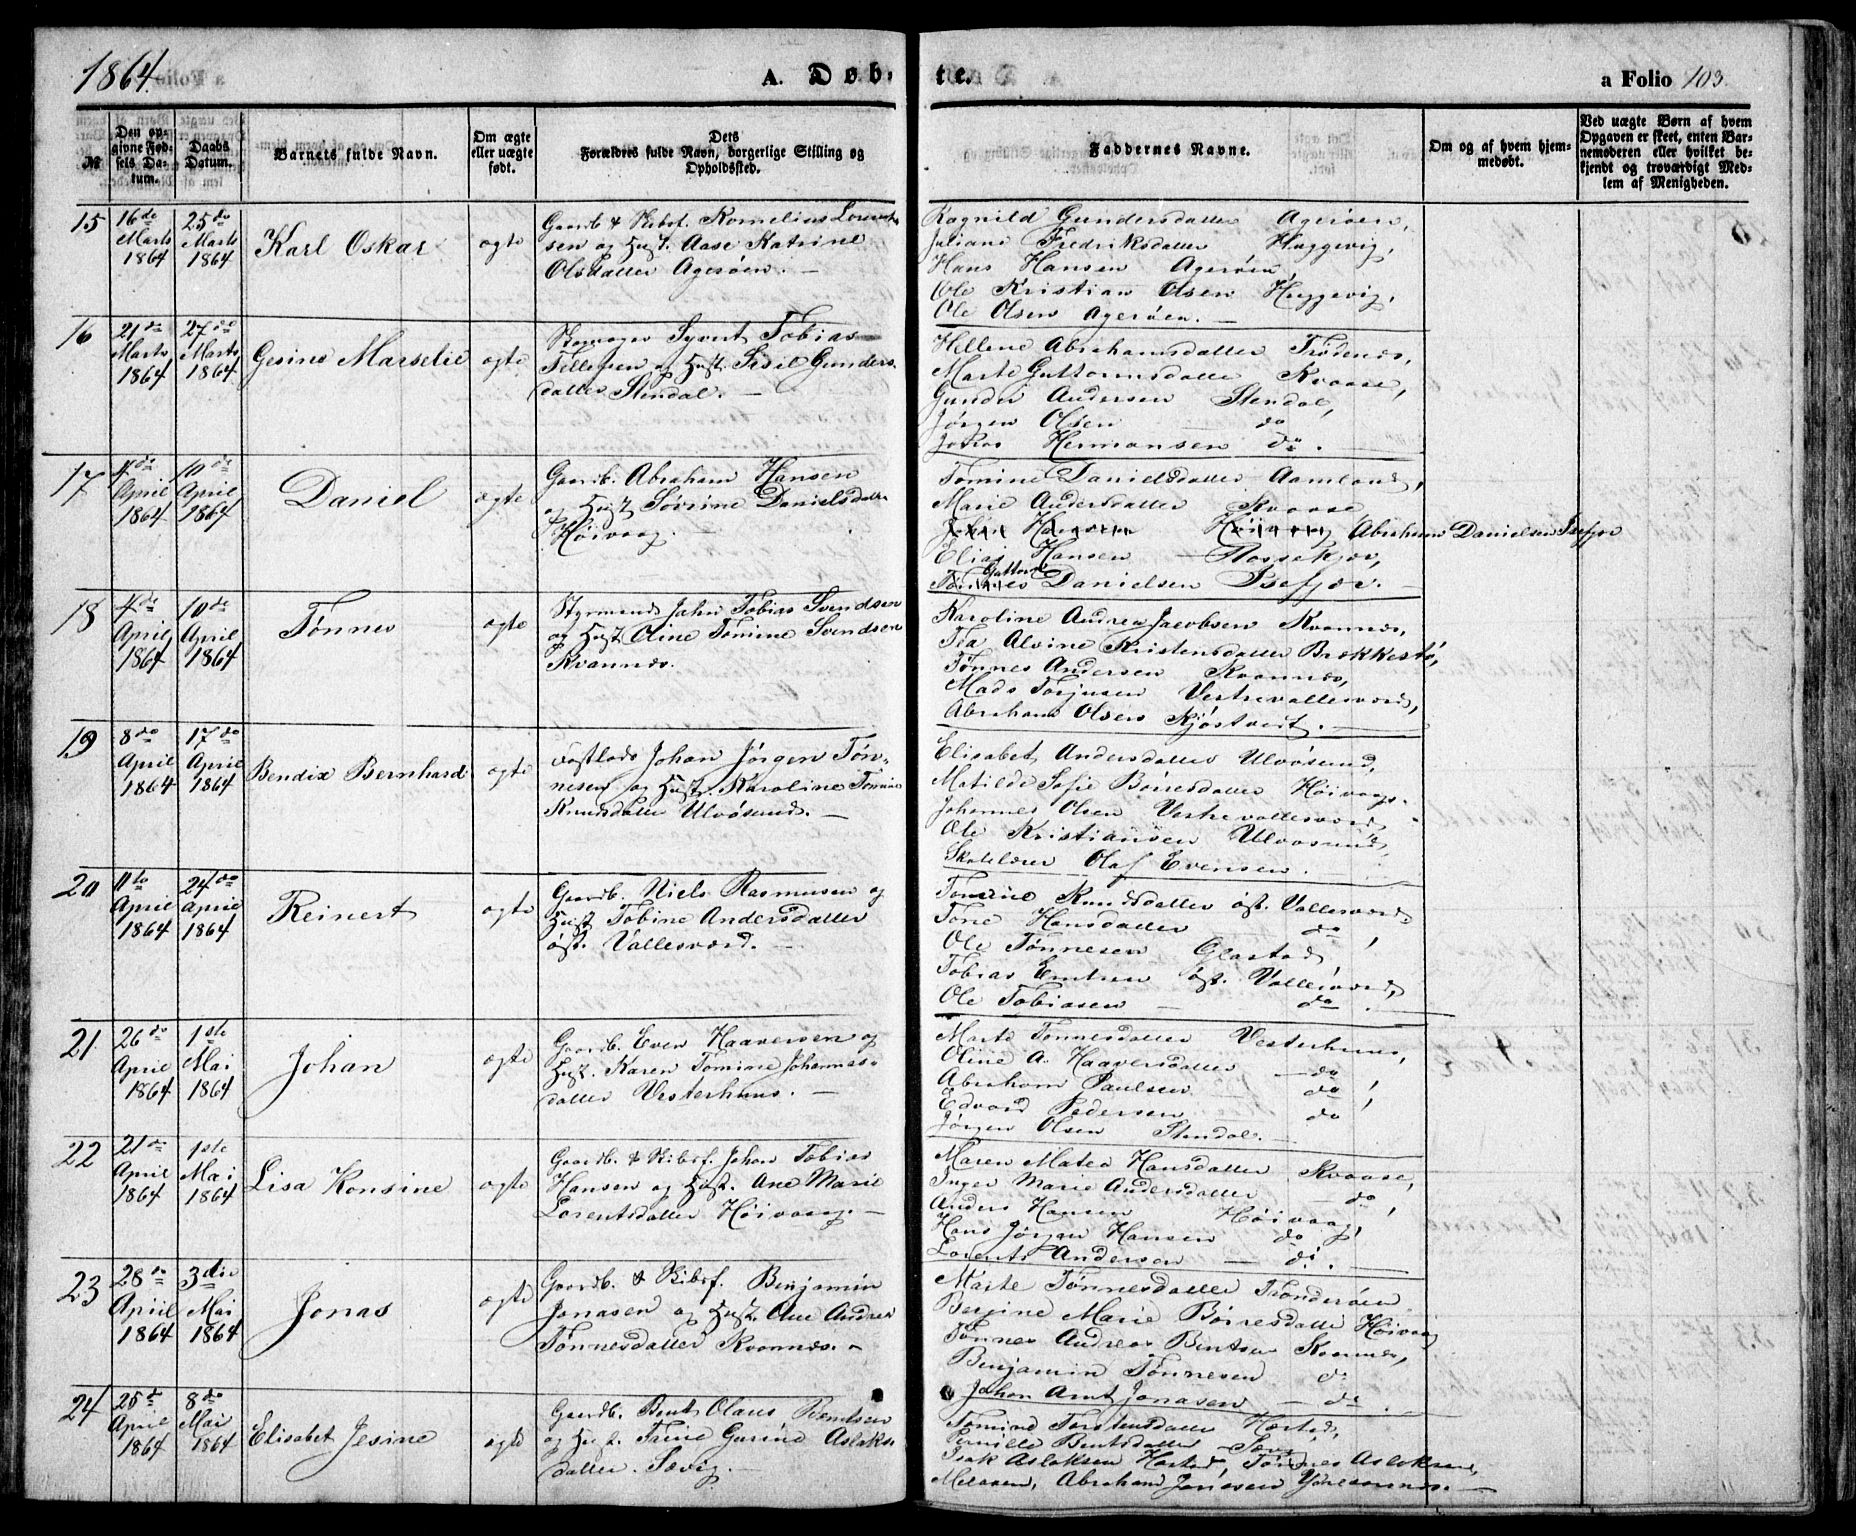 1864.
A. Døb-
te.
a Folio 103.
№
Den op-
givne Fød-
sels Da-
tum.
Daabs
Datum.
Barnets fulde Navn.
Om ægte
eller uægte
født.
Dets
Forældres fulde Navn, borgerlige Stilling og
Opholdssted.
Faddernes Navne.
Om og af hvem hjem-
medøbt.
Ved uægte Børn af hvem
Opgaven er skeet, enten Bar-
nemoderen eller hvilket be-
kjendt og troværdigt Med-
lem af Menigheden.
15
16de
Marts
1864
25de
Marts
1864
Karl Oskar
ægte
Gaardb. & Skibsf. Kornelius Lorents-
sen og Hust. Aase Katrine
Olsdatter Agerøen.
Ragnild Gundersdatter Agerøen,
Juliane Fredriksdatter Hæggevig,
Hans Hansen Agerøen,
Ole Kristian Olsen Hæggevig,
Ole Olsen Agerøen.
16
21de
Marts
1864
27de
Marts
1864
Gesine Marselie
ægte
Skomager Syvert Tobias
Tellefsen og Hust. Sisel Gunders-
datter Stendal.
Hellene Abrahamsdatter Trødenæs,
Marte Guttormsdatter Kvaase,
Gunder Andersen Stendal,
Jørgen Olsen do
Hermansen do.
17
4de
April
1864
10de
April
1864
Daniel
ægte
Gaardb. Abraham Hansen
og Hust. Søvrine Danielsdatter
Høivaag.
Tomine Danielsdatter Aamland,
Marie Andersdatter Kvaase,
Hansen Høivaag Abraham Danielsen Isefjær
Elias Hansen Stossekjær,
Guttorm
Tønnes Danielsen Isefjær.
18
4de
April
1864
10de
April
1864
Tønnes
ægte
Styrmand Jahn Tobias Svendsen
og Hust. Oline Tomine Svendsen
Kvannæs.
Karoline Andrea Jacobsen Kvannæs,
Tea Alvine Kristensdatter Brækkestø,
Tønnes Andersen Kvannæs,
Mads Torjusen Vestrevallesværd,
Abraham Olsen Kjøstvedt.
19
8de
April
1864
17de
April
1864
Bendix Bernhard
ægte
Johan Jørgen Tøn-
nesen og Hust. Karoline Tomine
Knudsdatter Ulvøsund.
Elisabet Andersdatter Ulvøsund,
Matilde Sofie Børresdatter Høivaag,
Johannes Olsen Vestrevallesværd
Ole Kristiansen Ulvøsund,
Skolelærer Olaf Evensen.
20
11te
April
1864
24de
April
1864
Reinert
ægte
Gaardb. Niels Rasmussen og
Hust. Tobine Andersdatter
øst. Vallesværd.
Tomine Knudsdatter øst. Vallesværd,
Tone Hansdatter do,
Ole Tønnesen Glastad
Tobias Emtsen øst. Vallesværd,
Ole Tobiasen do.
21
26de
April
1864
1ste
Mai
1864
Johan
ægte
Gaardb. Even Haaversen og
Hust. Karen Tomine Johannes-
datter Vesterhuus.
Marte Tønnesdatter Vesterhuus,
Oline A. Haaversdatter do,
Abraham Paulsen do,
Edvard Pedersen do
Jørgen Olsen Stendal.
22
21de
April
1864
1ste
Mai
1864
Lisa Konsine
ægte
Gaardb. & Skibsf. Johan Tobias
Hansen og Hust. Ane Marie
Lorentsdatter Høivaag.
Maren Matea Hansdatter Kvaase,
Inger Marie Andersdatter do,
Anders Hansen Høivaag,
Hans Jørgen Hansen do,
Lorents Andersen do.
23
28de
April
1864
3die
Mai
1864
Jonas
ægte
Gaardb. & Skibsf. Benjamin
Jonasen og Hust. Ane Andrea
Tønnesdatter Kvannæs.
Marte Tønnesdatter Trønderøen
Bergine Marie Børresdatter Høivaag
Tønnes Andreas Bentsen Kvannæs,
Benjamin Tønnesen do
Johan Arnt Jonasen do.
24
25de
April
1864
8de
Mai
1864
Elisabet Jesine
ægte
Gaardb. Bent Olaus Bentsen
og Hust. Trine Gurine Aslaks-
datter. Sævig.
Tomine Torstensdatter Hæstad,
Pernille Bentsdatter Sævig
Isak Aslaksen Hæstad, Tønnes Aslaksen,
Abraham Jonasen